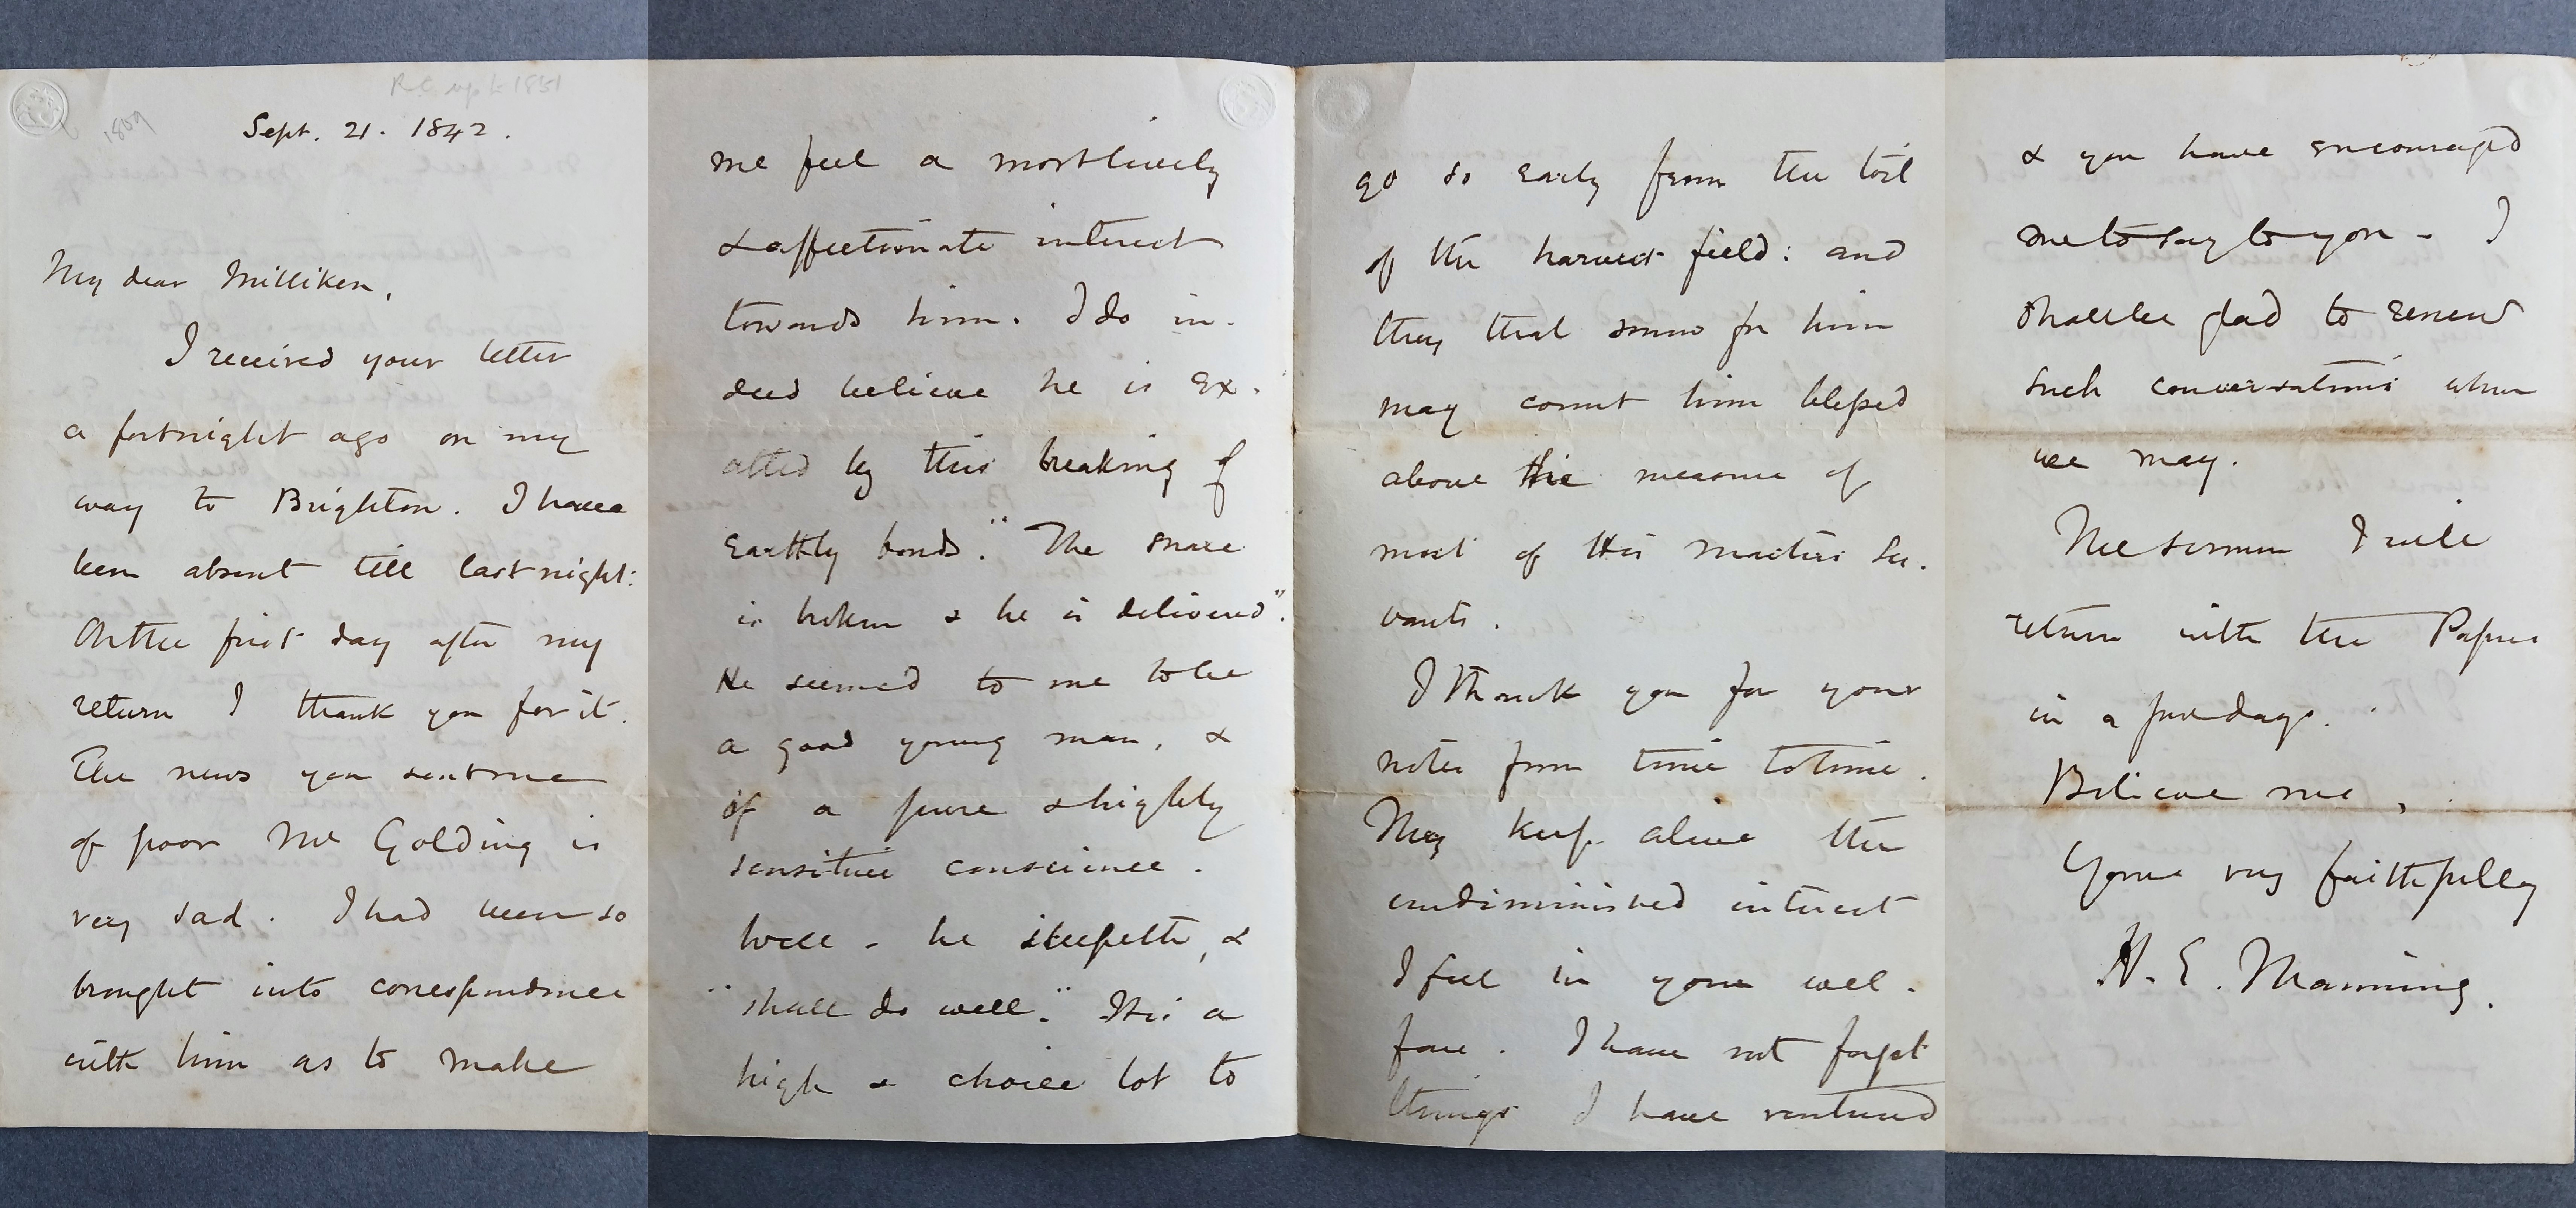 R.C. up to 1851
1809
Sept. 21. 1842.
My dear Milliken,
I received your letter
a fortnight ago on my
way to Brighton. I have
been absent till last night:
On the first day after my
return I thank you for it.
The news you sent me
of poor Mr Golding is
very sad. I had been so
brought into correspondence
with him as to make
me feel a most lively
& affectionate interest
towards him. I do in-
deed believe he is ex-
alted by this breaking of
Earthly bonds. "The snare
is broken & he is delivered".
He seemed to me to be
a good young man, &
of a pure & highly
sensitive conscience.
Well - he sleepeth, &
"shall do well." It is a
high & choice lot to
go so early from the toil
of the harvest field: and
they that sorrow for him
may count him blessed
above the measure of
most of his masters ser-
vants.
I thank you for your
notes from time to time.
They keep alive the
undiminished interest
I feel in your wel-
fare. I have not forgot
things I have ventured
& you have encouraged
me to say to you - I
shall be glad to renew
such conversations when
we may.
The sermon I will
return with the Papers
in a few days.
Believe me,
Yours very faithfully
H. E. Manning.